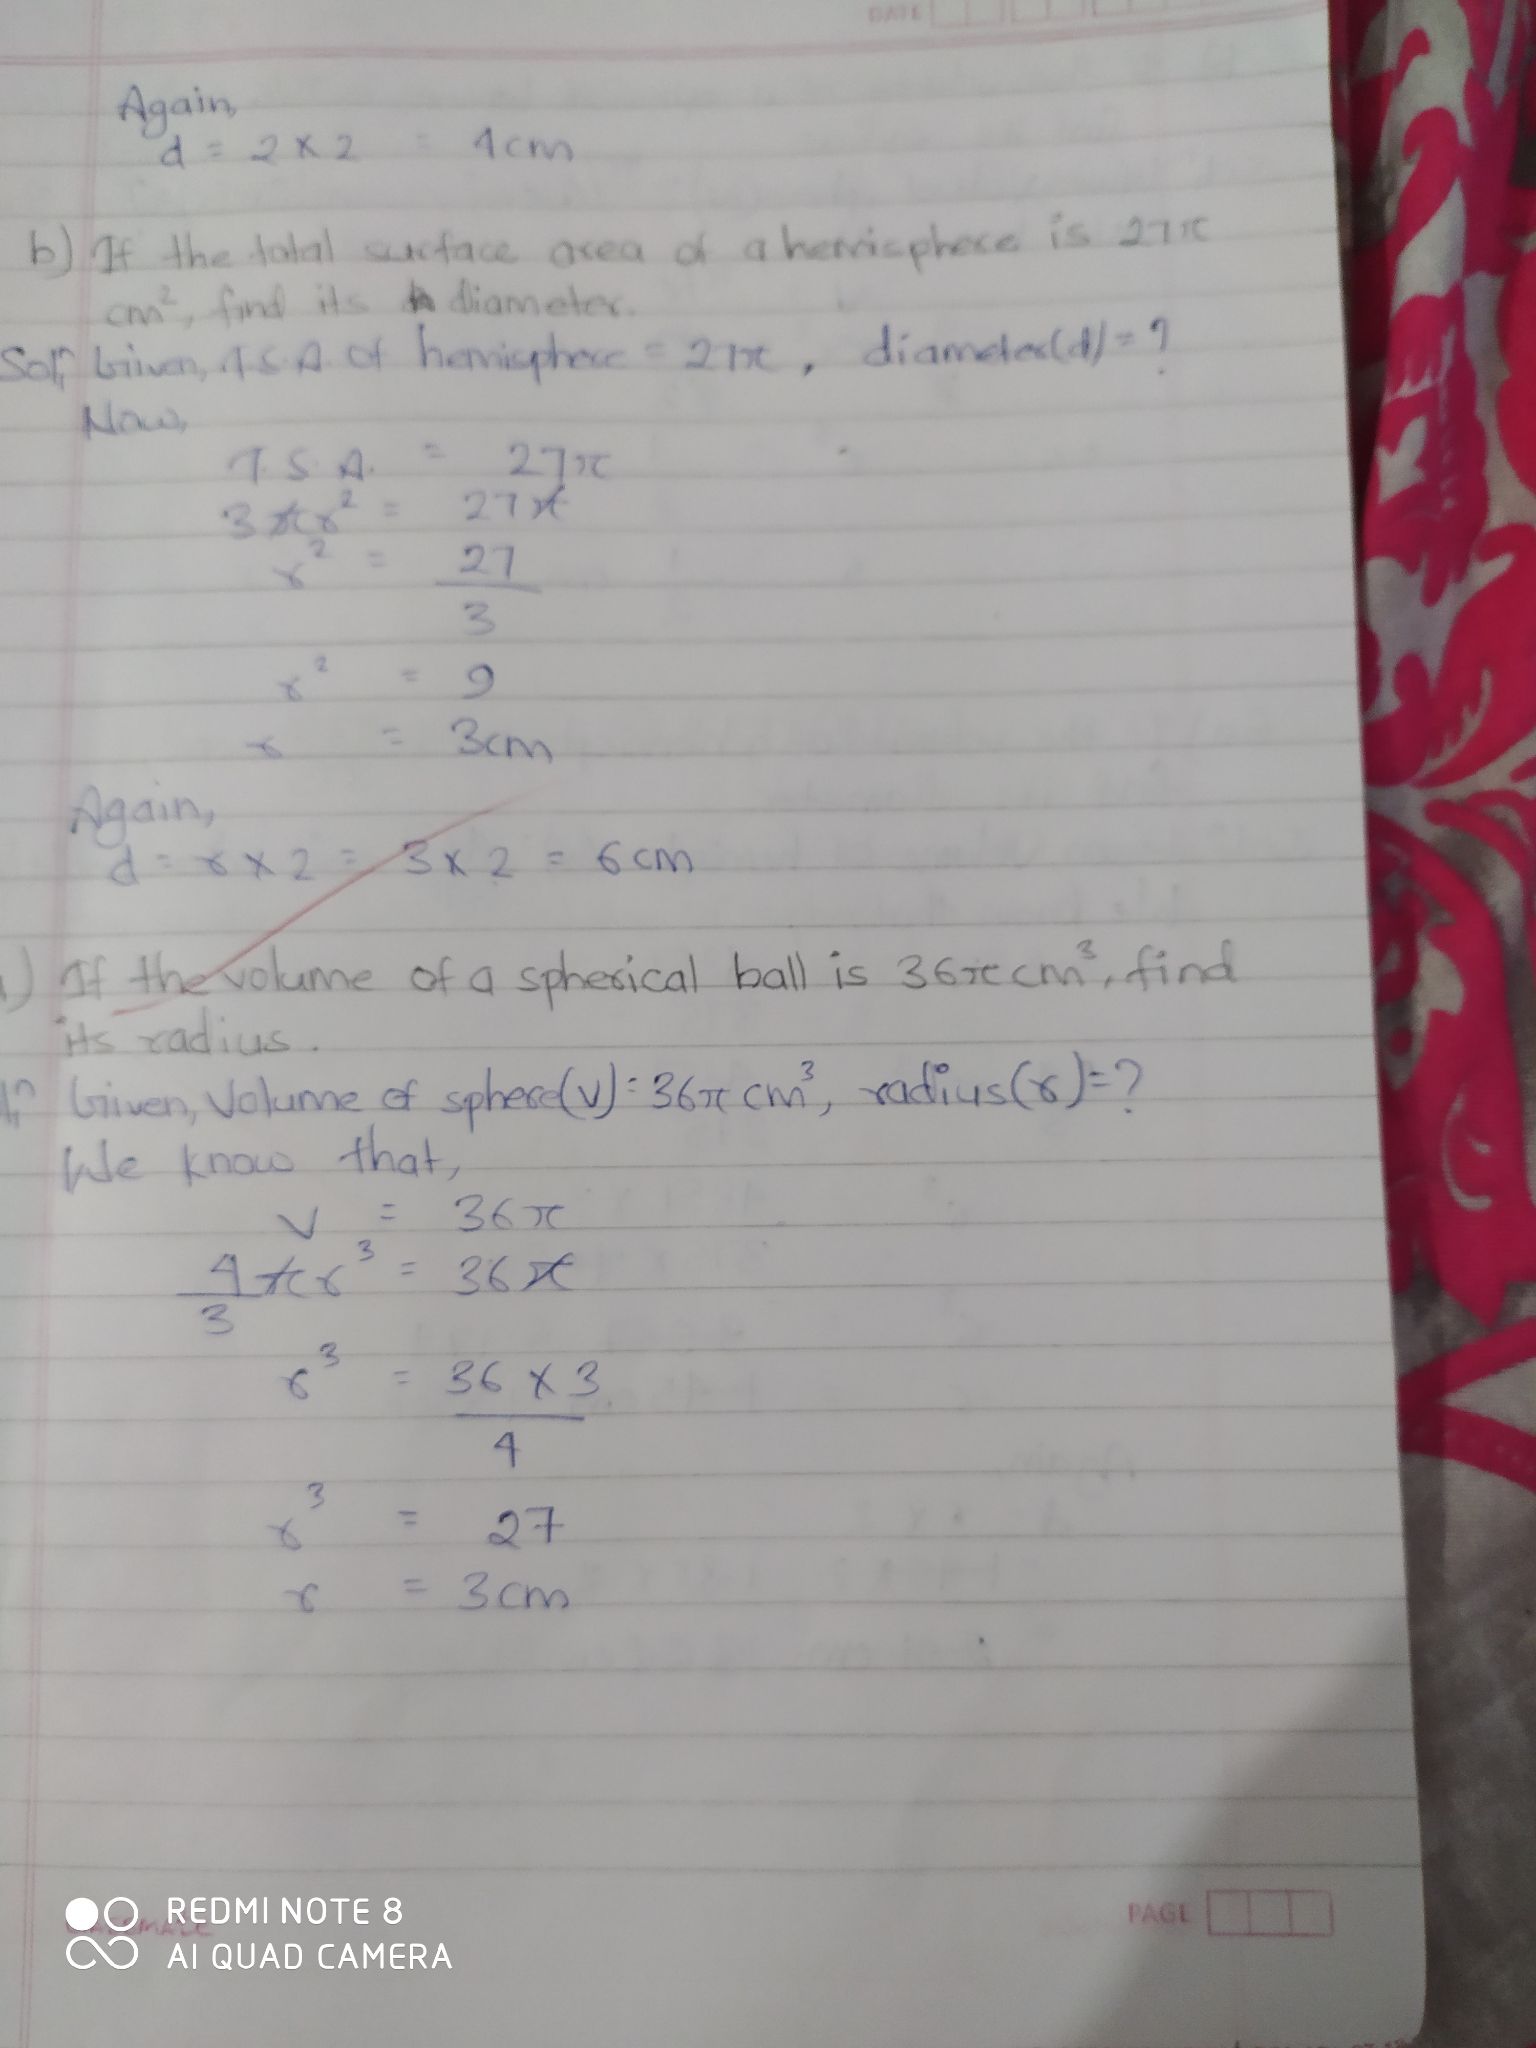 DATE
Again,
d = 2 x 2 = 4cm
b) If the total surface area of a hemisphere is 27π
cm², find its diameter.
Solⁿ, Given, T.S.A. of hemisphere = 27π, diameter(d) = ?
Now,
T.S.A. = 27π
3πr² = 27π
r² = 27
3
r² = 9
r = 3cm
Again,
d = r x 2 = 3 x 2 = 6cm
) If the volume of a spherical ball is 36πcm³, find
its radius.
Given, Volume of sphere(v) = 36π cm³, radius(r) = ?
We know that,
v = 36π
4πr³ = 36π
3
r³ = 36 x 3
4
r³ = 27
r = 3cm
PAGE
REDMI NOTE 8
AI QUAD CAMERA